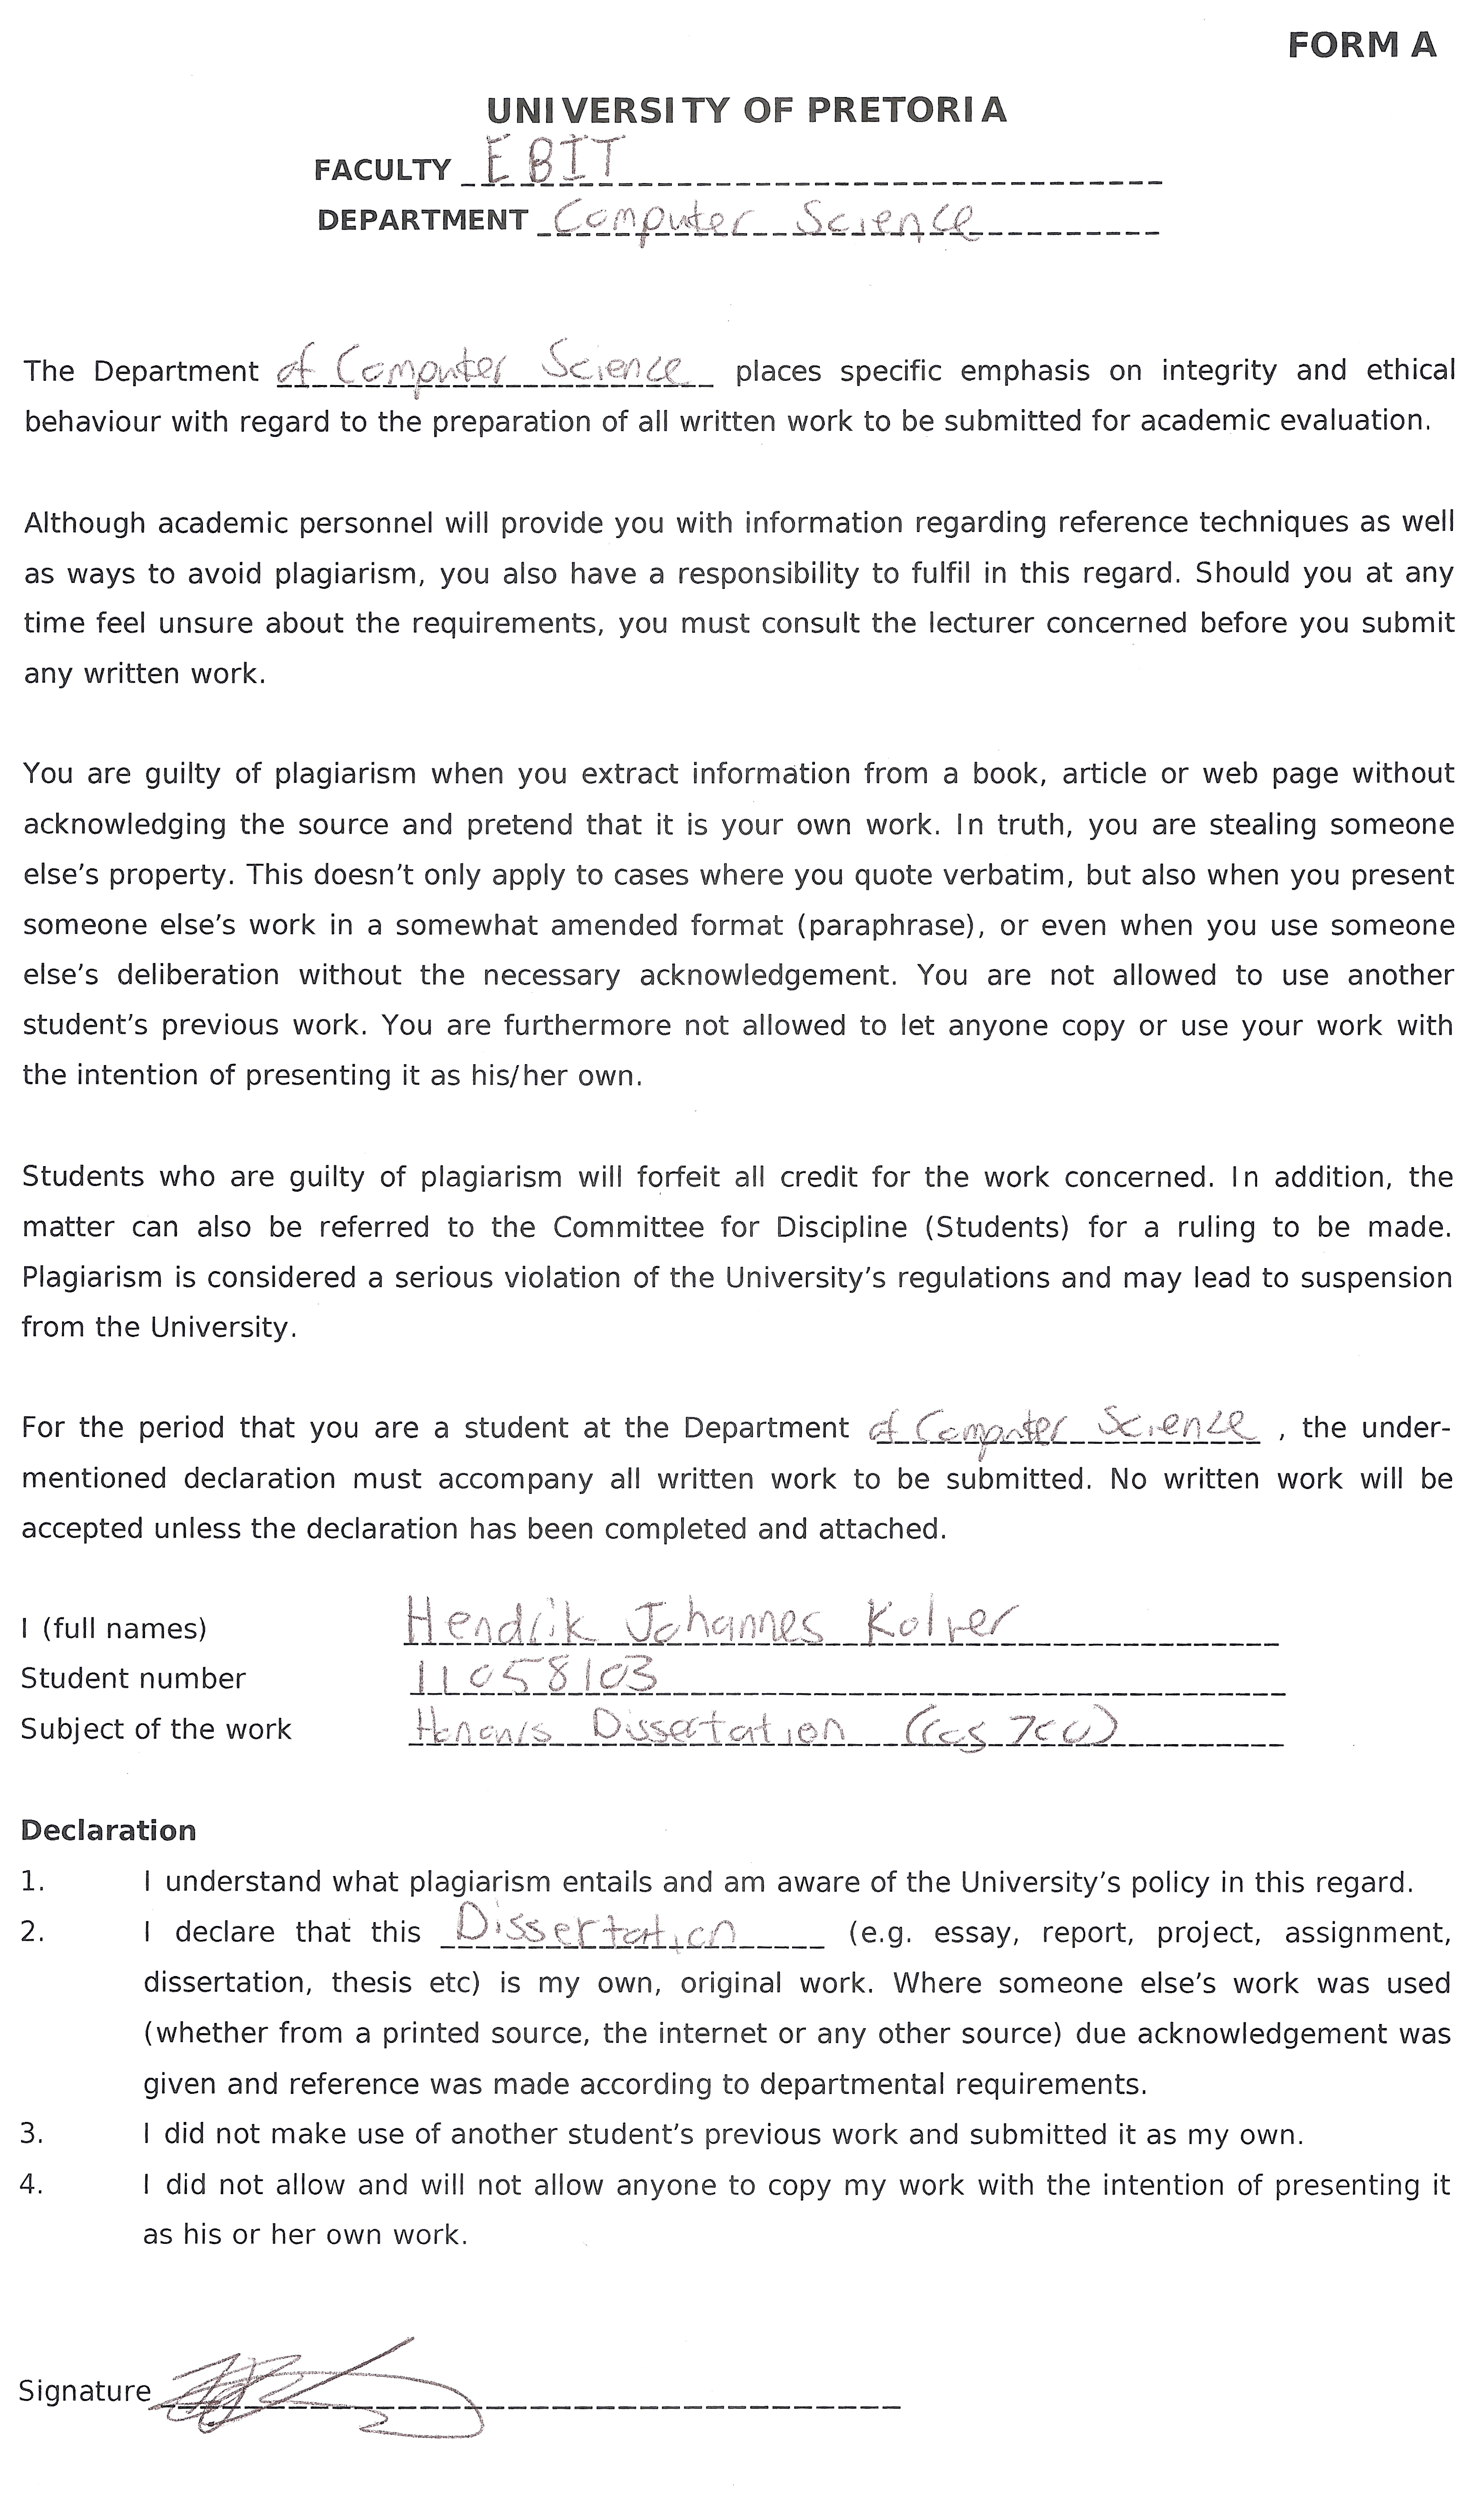 FORM A
UNIVERSITY OF PRETORIA
FACULTY EBIT
DEPARTMENT Computer Science
The Department of Computer Science places specific emphasis on integrity and ethical
behaviour with regard to the preparation of all written work to be submitted for academic evaluation.
Although academic personnel will provide you with information regarding reference techniques as well
as ways to avoid plagiarism, you also have a responsibility to fulfil in this regard. Should you at any
time feel unsure about the requirements, you must consult the lecturer concerned before you submit
any written work.
You are guilty of plagiarism when you extract information from a book, article or web page without
acknowledging the source and pretend that it is your own work. In truth, you are stealing someone
else’s property. This doesn’t only apply to cases where you quote verbatim, but also when you present
someone else’s work in a somewhat amended format (paraphrase), or even when you use someone
else’s deliberation without the necessary acknowledgement. You are not allowed to use another
student’s previous work. You are furthermore not allowed to let anyone copy or use your work with
the intention of presenting it as his/her own.
Students who are guilty of plagiarism will forfeit all credit for the work concerned. In addition, the
matter can also be referred to the Committee for Discipline (Students) for a ruling to be made.
Plagiarism is considered a serious violation of the University’s regulations and may lead to suspension
from the University.
For the period that you are a student at the Department of Computer Science , the under-
mentioned declaration must accompany all written work to be submitted. No written work will be
accepted unless the declaration has been completed and attached.
I (full names) Hendrik Johannes Kolver
Student number 11058103
Subject of the work Honours Dissertation
Declaration
1. I understand what plagiarism entails and am aware of the University’s policy in this regard.
2. I declare that this Dissertation (e.g. essay, report, project, assignment,
dissertation, thesis etc) is my own, original work. Where someone else’s work was used
(whether from a printed source, the internet or any other source) due acknowledgement was
given and reference was made according to departmental requirements.
3. I did not make use of another student’s previous work and submitted it as my own.
4. I did not allow and will not allow anyone to copy my work with the intention of presenting it
as his or her own work.
Signature